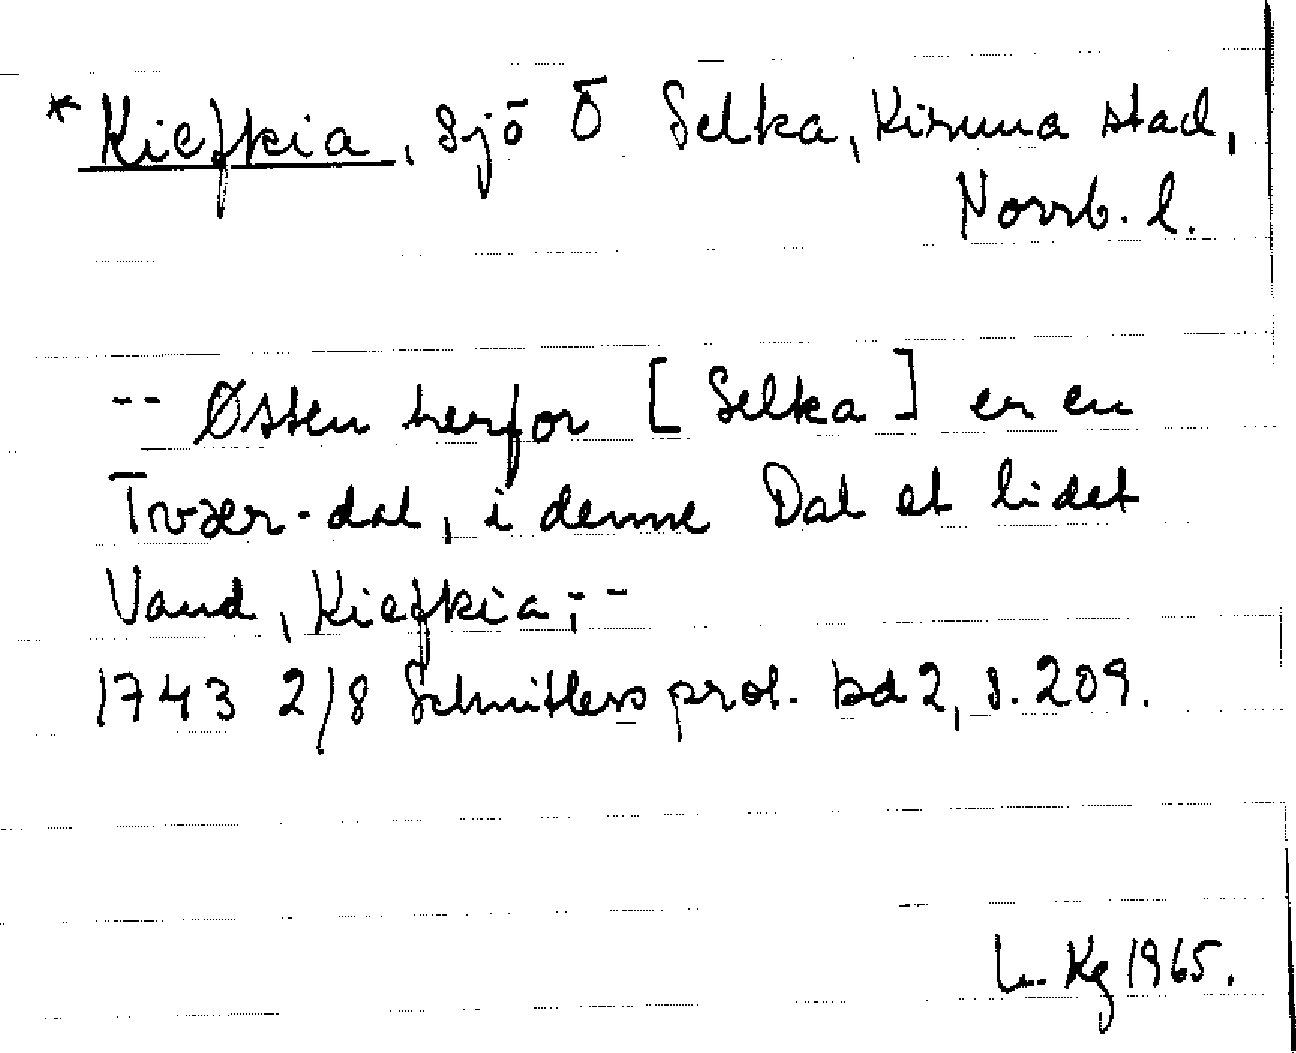 * Kiefkia, sjö Ö Selka, Kiruna stad,
Norrb. l.
-- Østen herfor [Selka] er en
Tvær-dal, i denne Dal et lidet
Vand, Kiefkia; --
1743 2/8 Schnitlers prot. bd 2, s. 209.
L. Kg 1965.